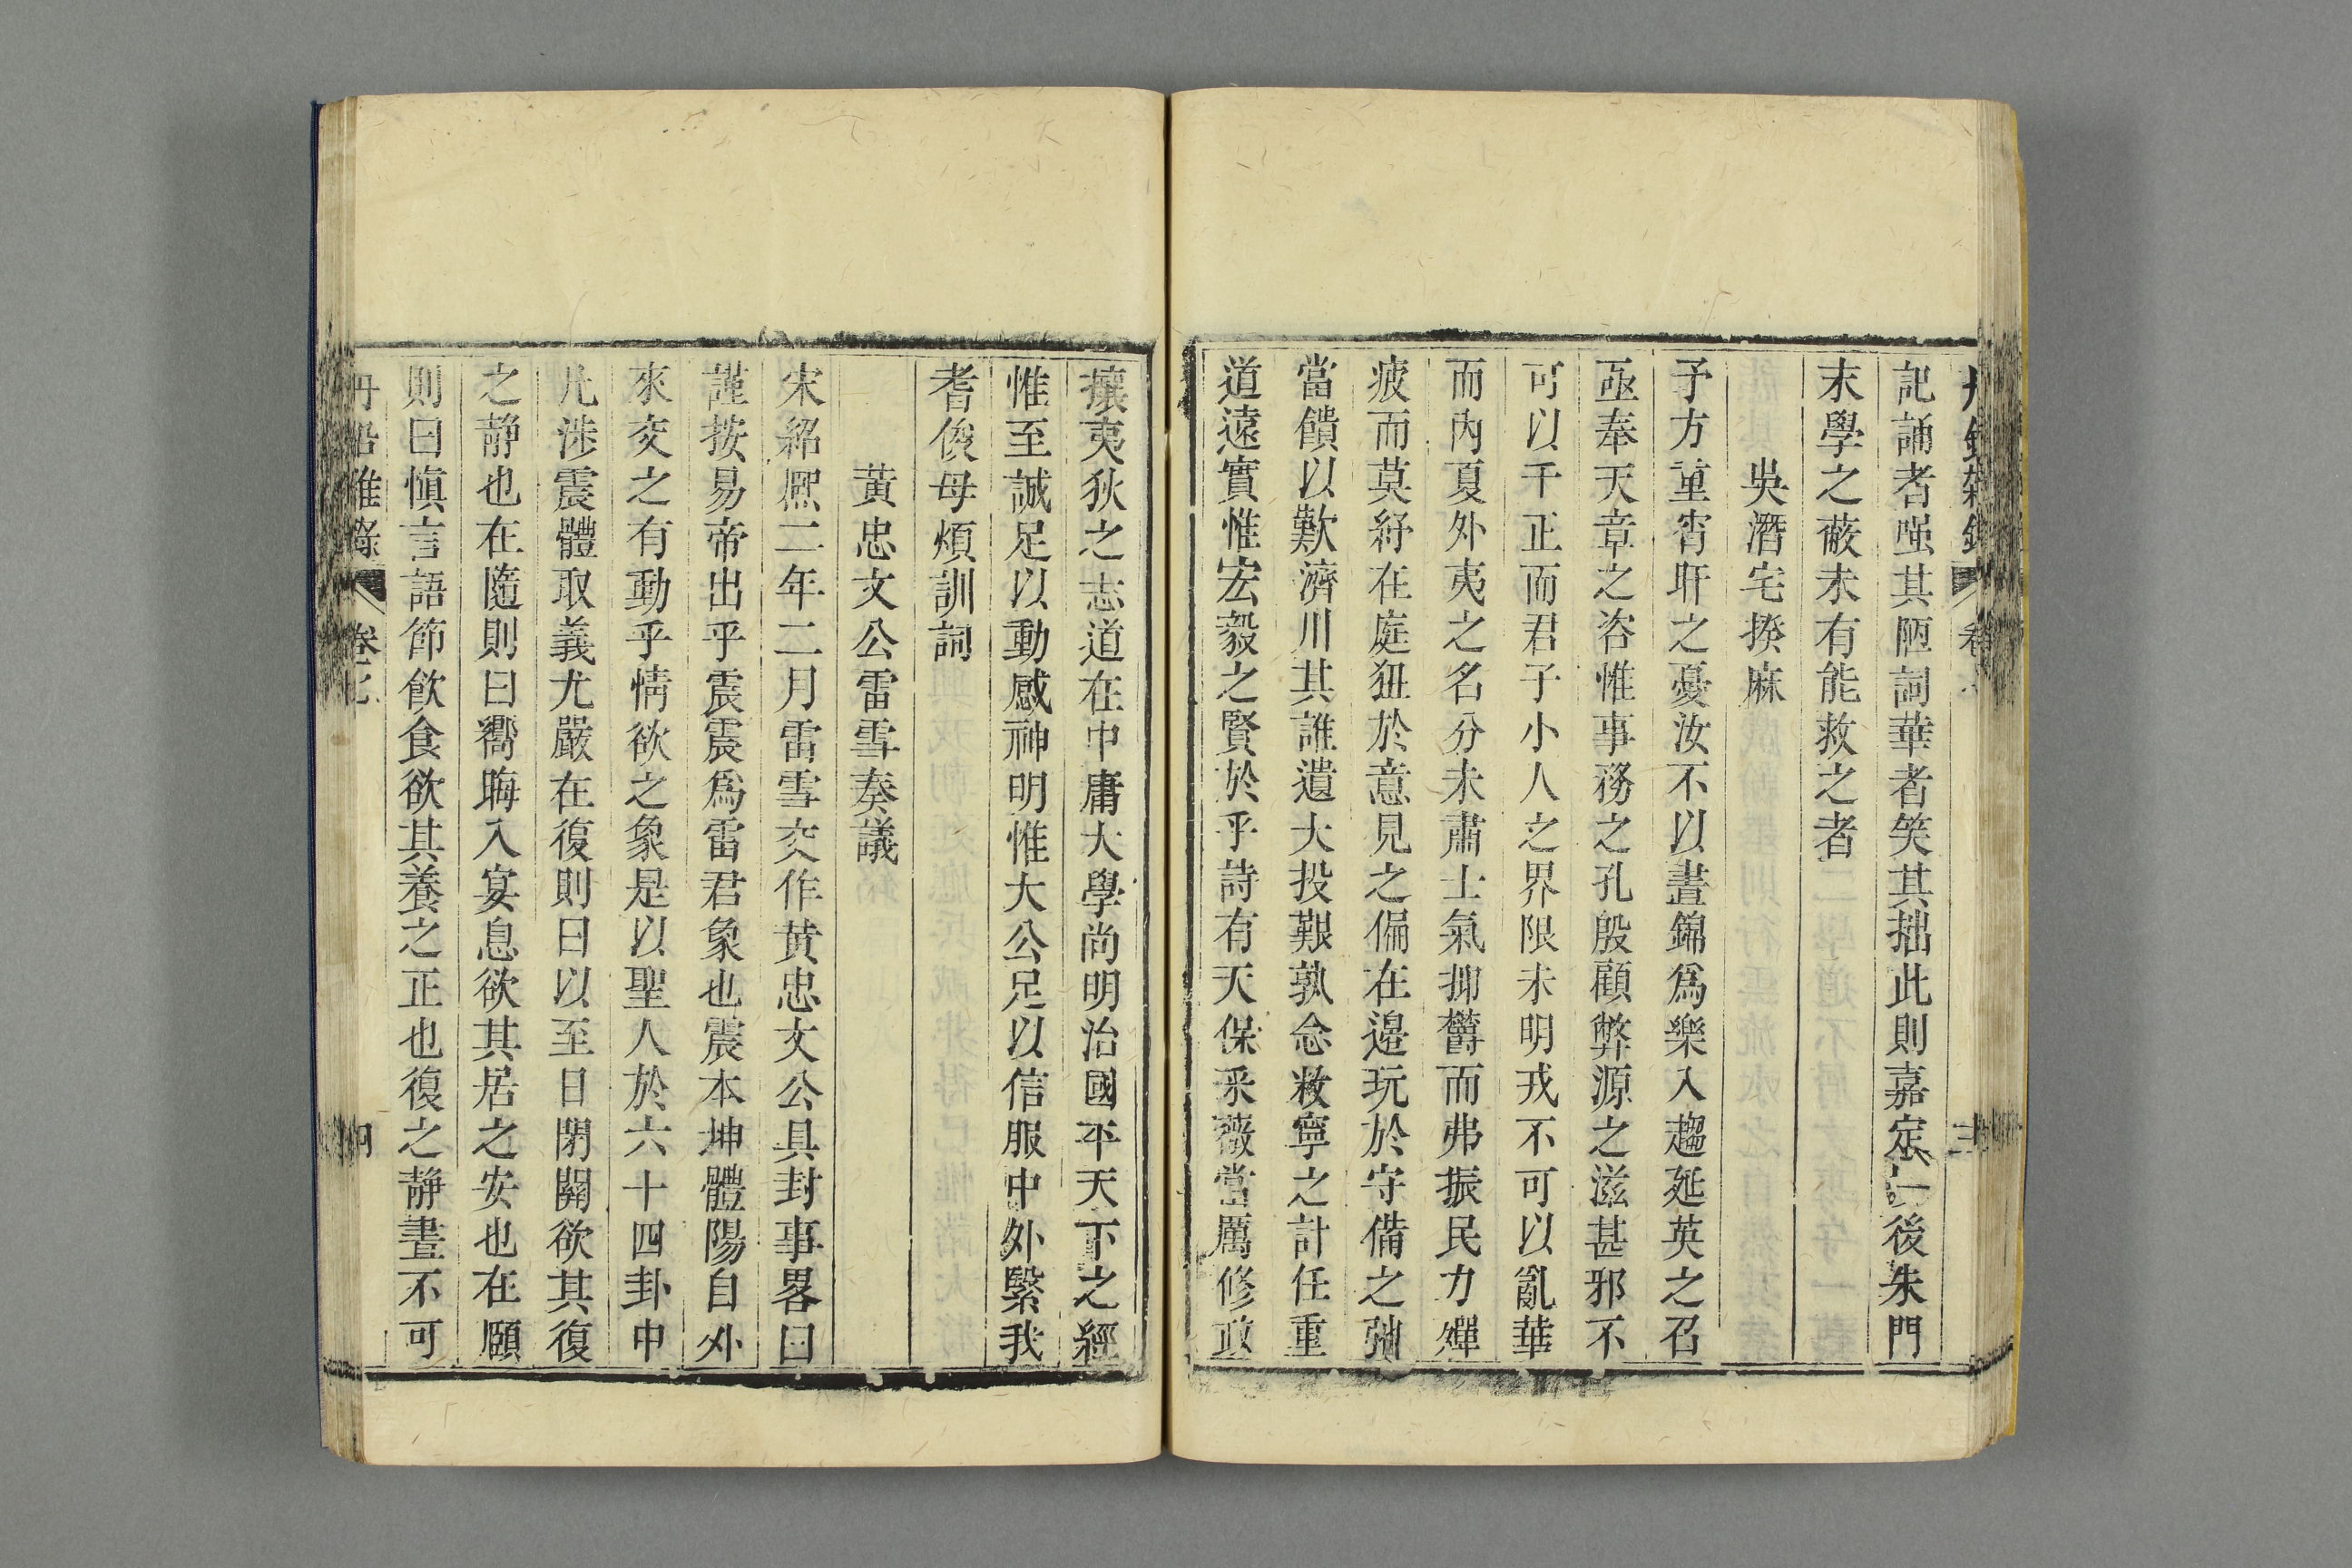 記誦者強其陋詞華者笑其拙此則嘉定以後朱門
末學之蔽未有能救之者
吳潛宅揆麻
予方重宵旰之憂汝不以晝錦爲樂入趨延英之召
亟奉天章之咨惟事務之孔殷顧弊源之滋甚邪不
可以干正而君子小人之界限未明戎不可以亂華
而內夏外夷之名分未肅士氣抑鬱而弗振民力殫
疲而莫紓在庭狃於意見之偏在邉玩於守備之弛
當饋以歎濟川其誰遺大投艱孰念敉寧之計任重
道遠實惟宏毅之賢於乎詩有天保采薇當厲修政
攘夷狄之志道在中庸大學尚明治國平天下之經
惟至誠足以動感神明惟大公足以信服中外緊我
耆俊毋煩訓詞
黃忠文公雷雪奏議
宋紹熙二年二月雷雪交作黃忠文公具封事畧曰
謹按易帝出乎震震爲雷君象也震本坤體陽自外
來交之有動乎情欲之象是以聖人於六十四卦中
凡涉震體取義尤嚴在復則曰以至日閉關欲其復
之靜也在隨則曰嚮晦入宴息欲其居之安也在頤
則曰愼言語節飲食欲其養之正也復之靜晝不可
丹鉛雜錄 卷七 四